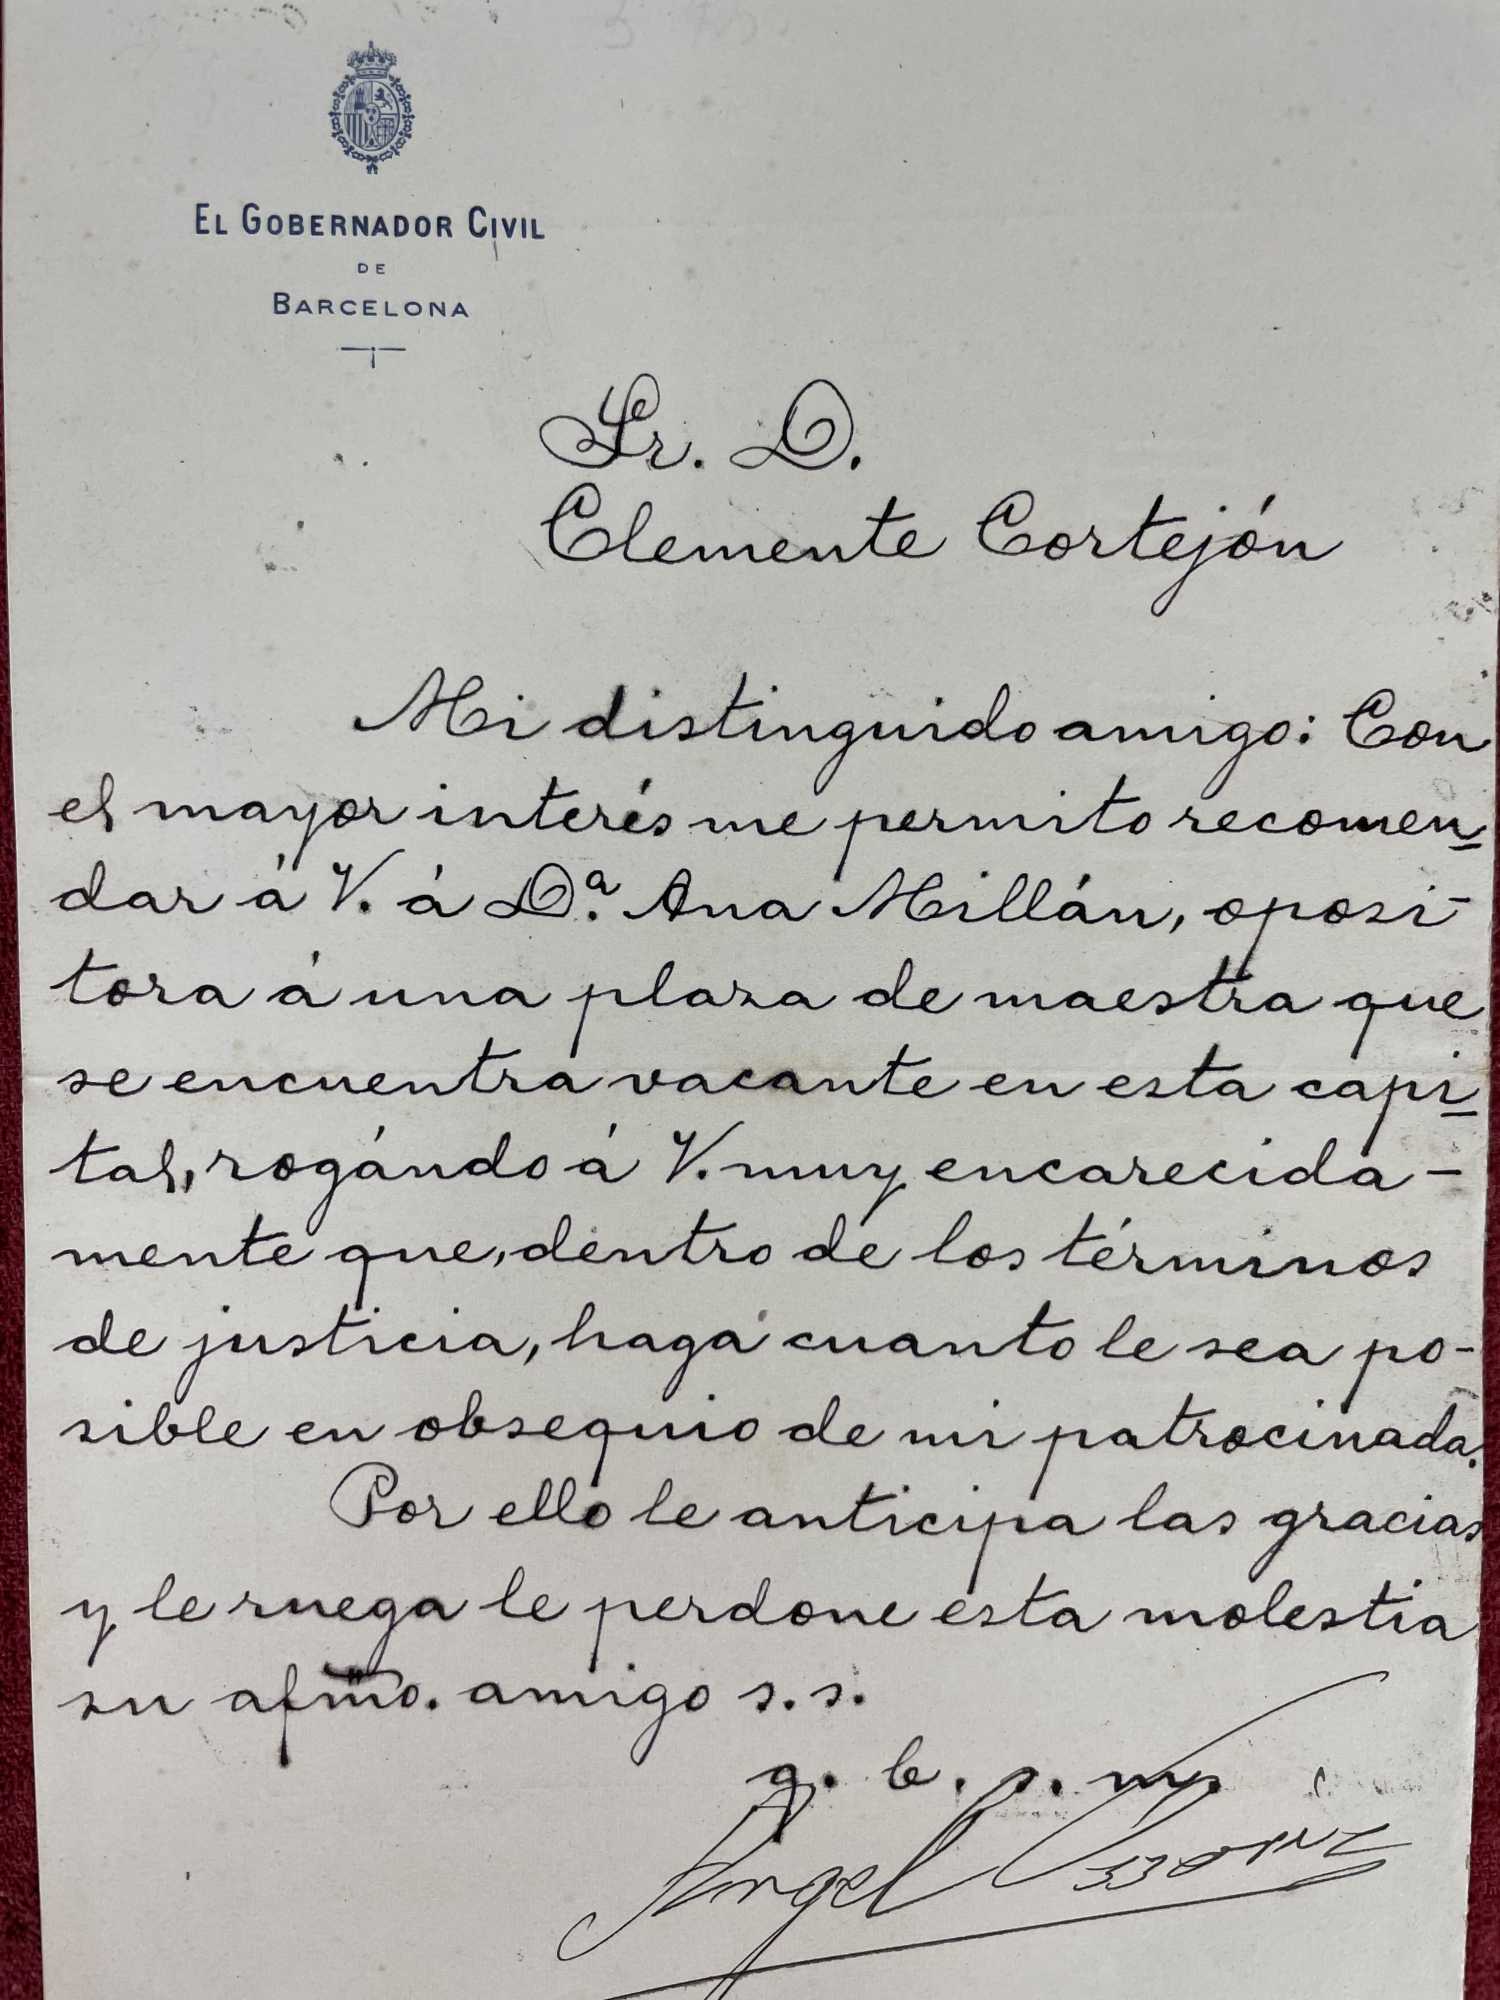 EL GOBERNADOR CIVIL
DE
BARCELONA
Sr. D.
Clemente Cortejón
Mi distinguido amigo: Con
el mayor interés me permito recomen-
dar á V. á D.ª Ana Millán, oposi-
tora á una plaza de maestra que
se encuentra vacante en esta capi-
tal, rogándo á V. muy encarecida-
mente que, dentro de los términos
de justicia, haga cuanto le sea po-
sible en obsequio de mi patrocinada.
Por ello le anticipa las gracias
y le ruega le perdone esta molestia
su afmo. amigo s. s.
q. b. s. m.
Angel Ossorio